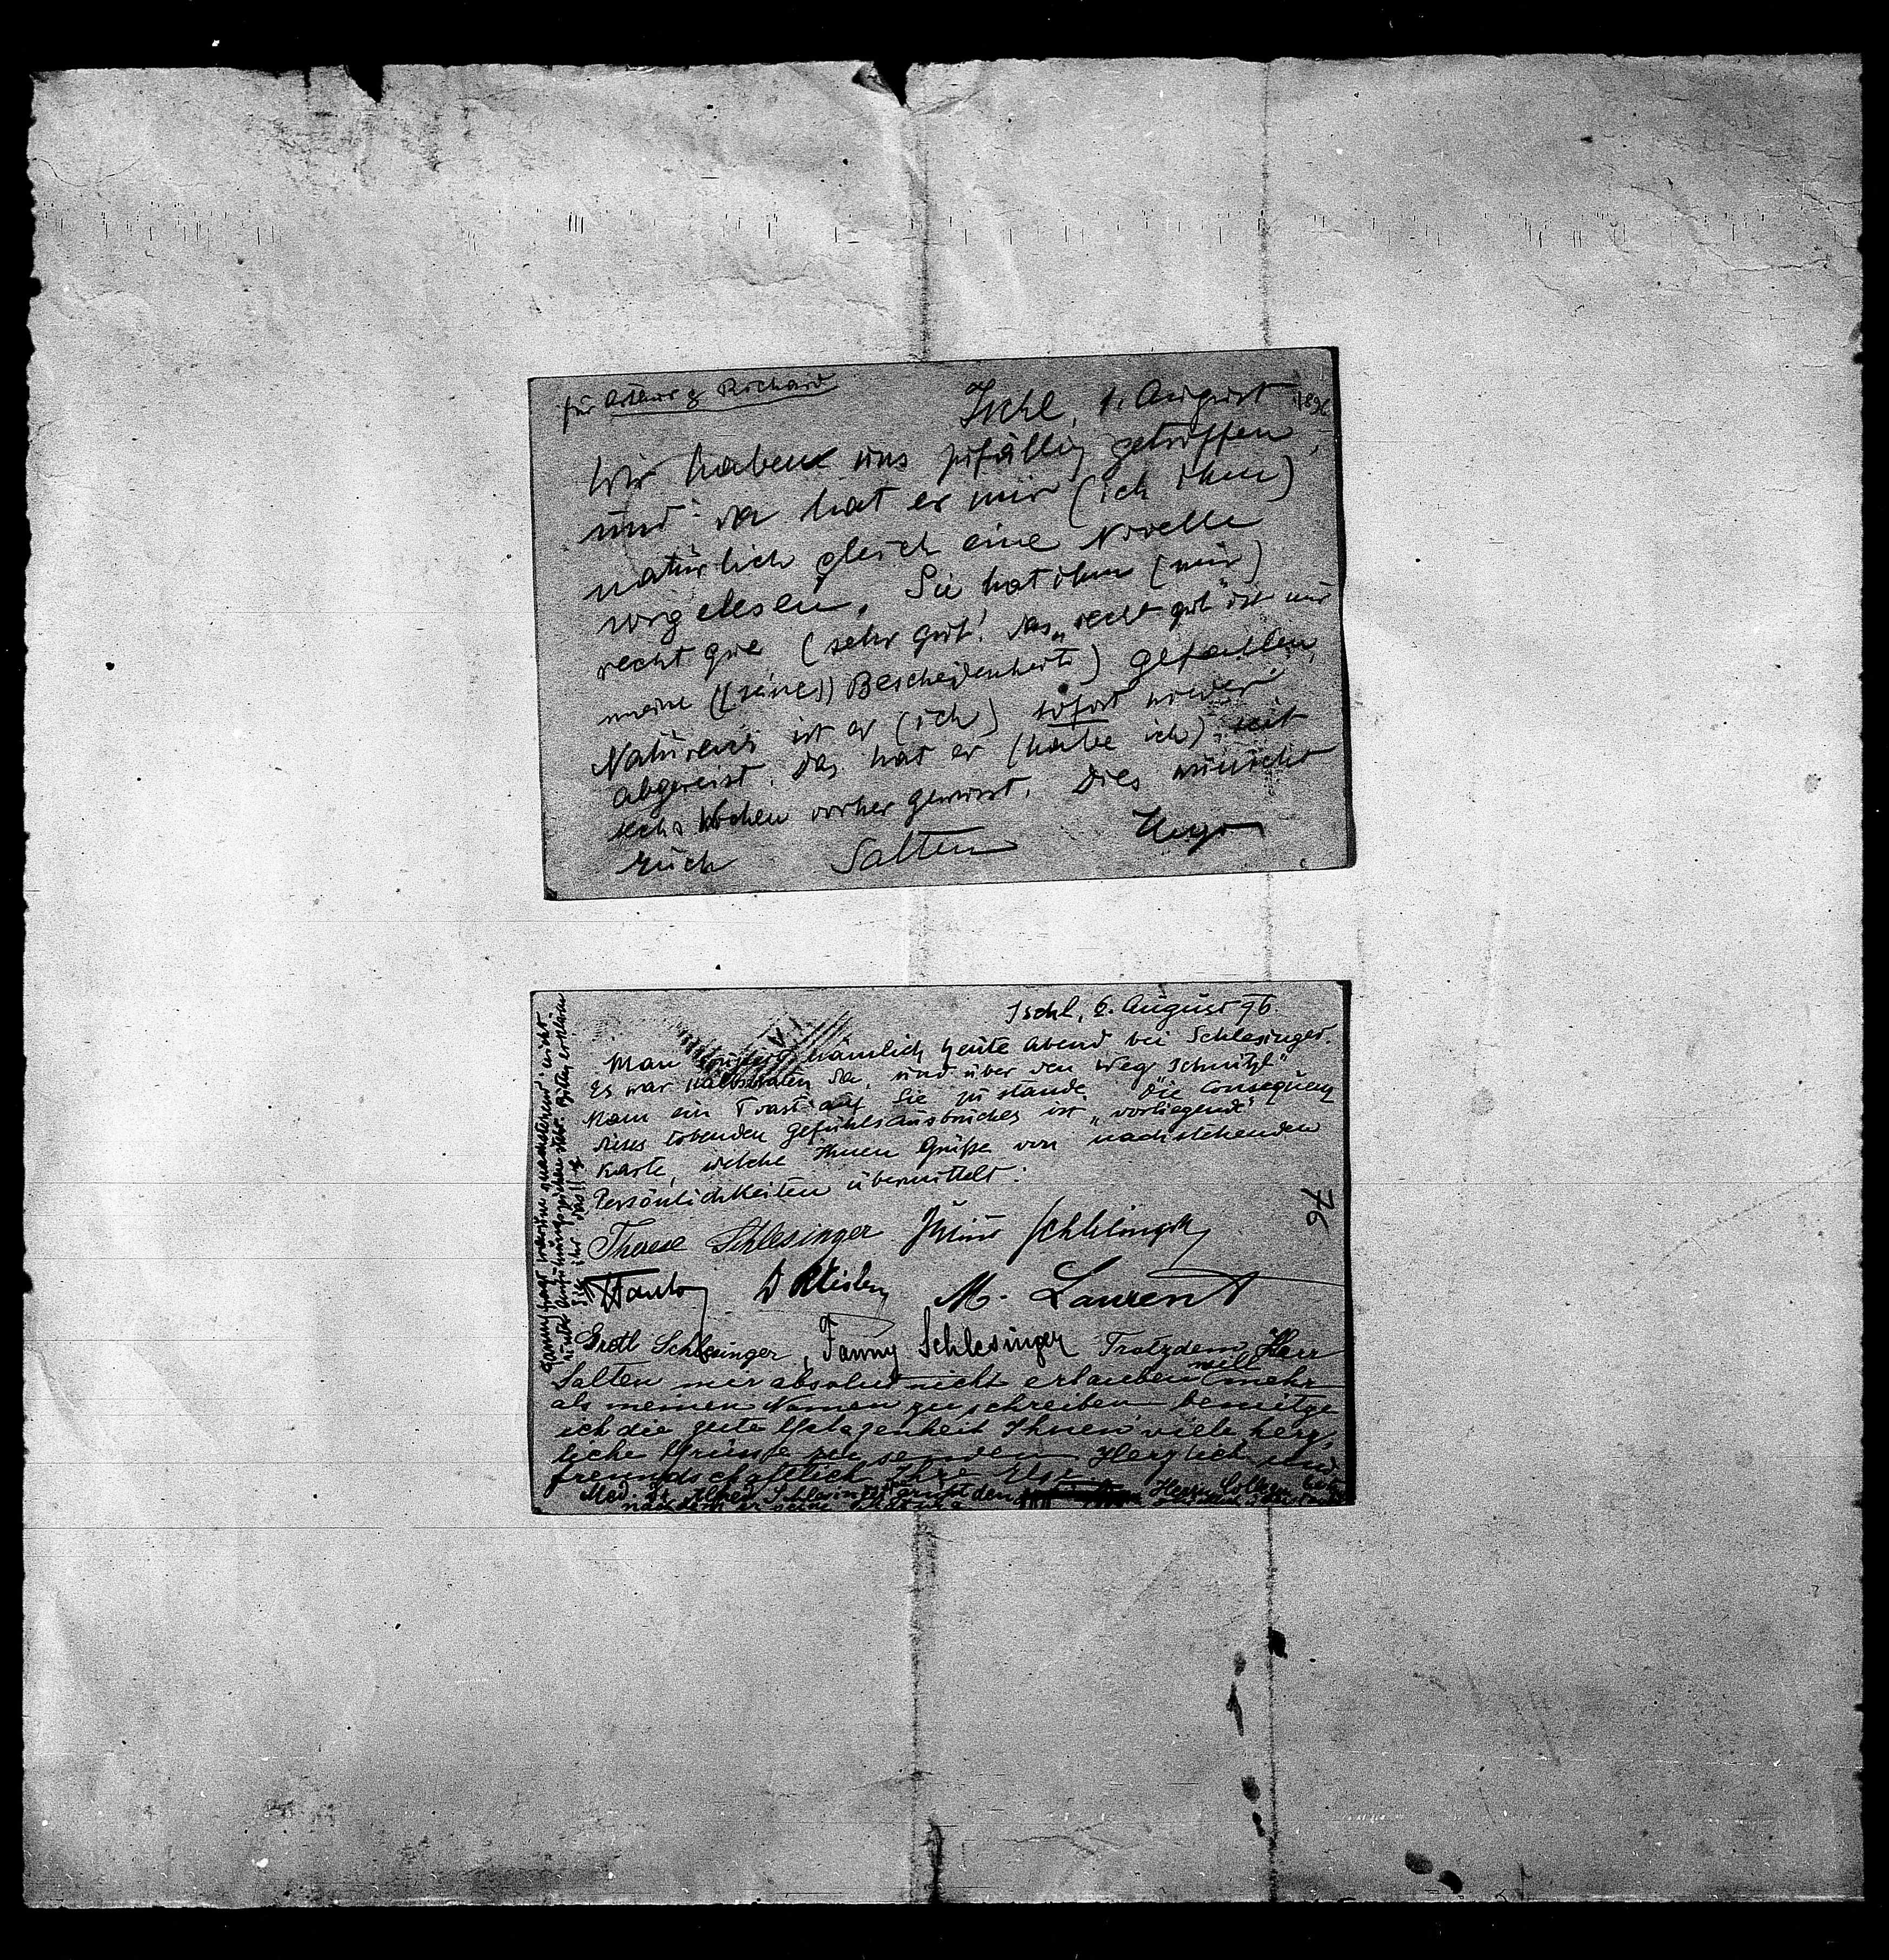 für Arthur & Richard
Ischl, 1. August 1896
Wir haben uns zufällig getroffen,
und da hat er mir (ich ihm)
natürlich gleich eine Novelle
vorgelesen. Sie hat ihm (mir)
recht gut (sehr gut! das „recht gut" ist nur
meine ((seine)) Bescheidenheit) gefallen,
Natürlich ist er (ich) sofort wieder
abgereist. das hat er (habe ich) seit
sechs Wochen vorher gewusst. Dies wünscht
Euch Salten Hugo
Ischl, 6. August 96.
Man nämlich heute Abend bei Schlesinger.
Es war Kalbsbraten da, und über den Weg „Schnitzl"
kam ein Toast auf Sie zu stande. Die Consequenz
dieses tobenden Gefühlsausbruches ist „vorliegende"
Karte, welche Ihnen Grüße von nachstehenden
Persönlichkeiten übermittelt:
Therese Schlesinger Schlesinger
M. Laurent
Gretl Schlesinger, Fanny Schlesinger Trotzdem Herr
Salten mir absolut nicht erlauben will mehr
als meinen Namen zu schreiben benutze
ich die gute Gelegenheit Ihnen viele herz-
liche Grüsse zu senden Herzlich und
freundschaftlich Ihre Else
Med. Dr. den Herrn
nachdem er seine
Fanny fragt warum „nachstehend" nicht
unter Anführungszeichen steht. Bitte, erklären
Sie ihr das!
76